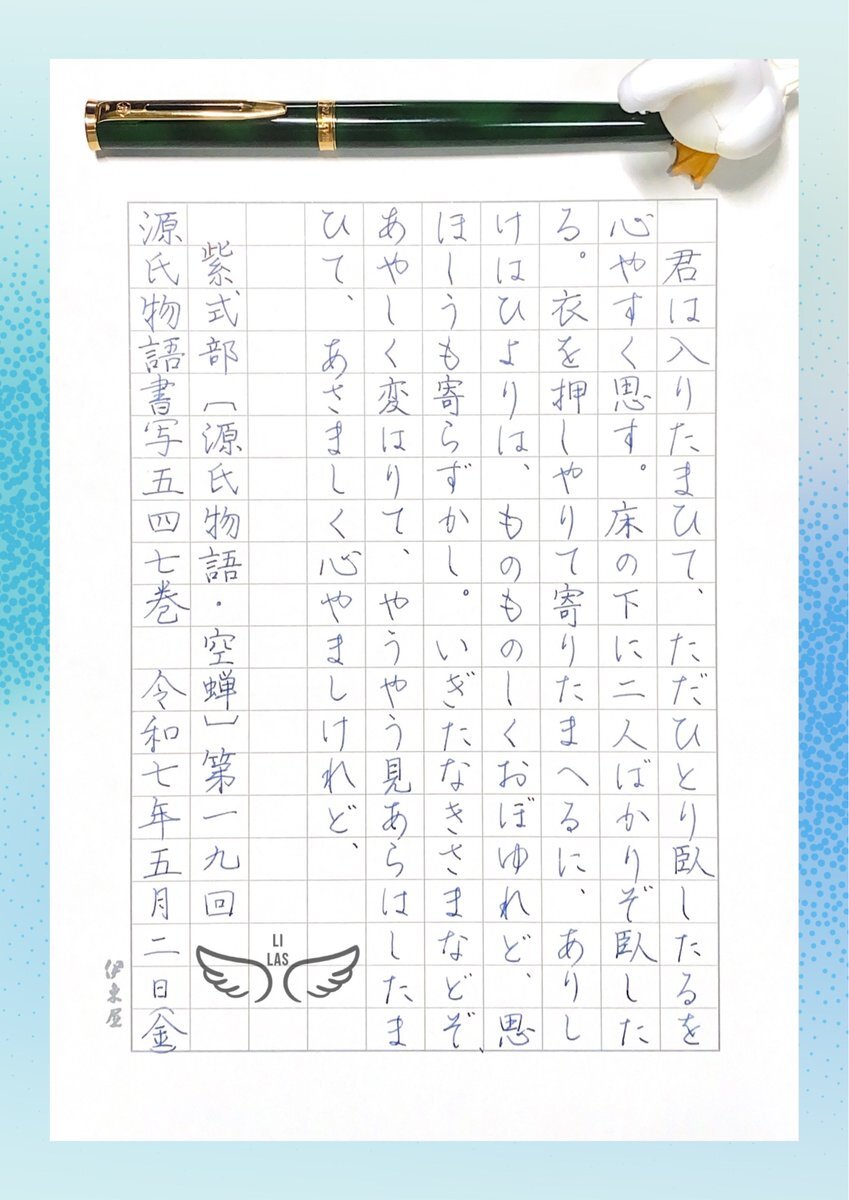 君は入りたまひて、ただひとり臥したるを
心やすく思す。床の下に二人ばかりぞ臥した
る。衣を押しやりて寄りたまへるに、ありし
けはひよりは、ものものしくおぼゆれど、思
ほしうも寄らずかし。いぎたなきさまなどぞ、
あやしく変はりて、やうやう見あらはしたま
ひて、あさましく心やましけれど、
紫式部〔源氏物語・空蝉〕第一九回
源氏物語書写五四七巻 令和七年五月二日(金)
LI
LAS
伊東屋